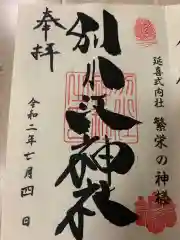 延喜式内社 繁栄の神様
奉拝
別小江神社
令和二年七月四日